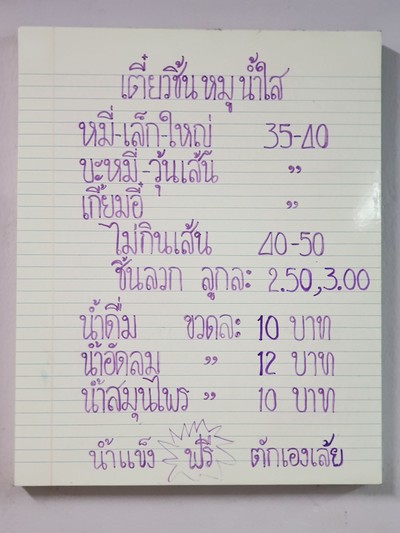 เตี๋ยวชิ้นหมูน้ำใส
หมี่-เล็ก-ใหญ่ 35-40
บะหมี่-วุ้นเส้น ”
เกี้ยมอี๋ ”
ไม่กินเส้น 40-50
ชิ้นลวก ลูกละ 2.50,3.00
น้ำดื่ม ขวดละ 10 บาท
น้ำอัดลม ” 12 บาท
น้ำสมุนไพร ” 10 บาท
น้ำแข็ง ฟรี ตักเองเล้ย